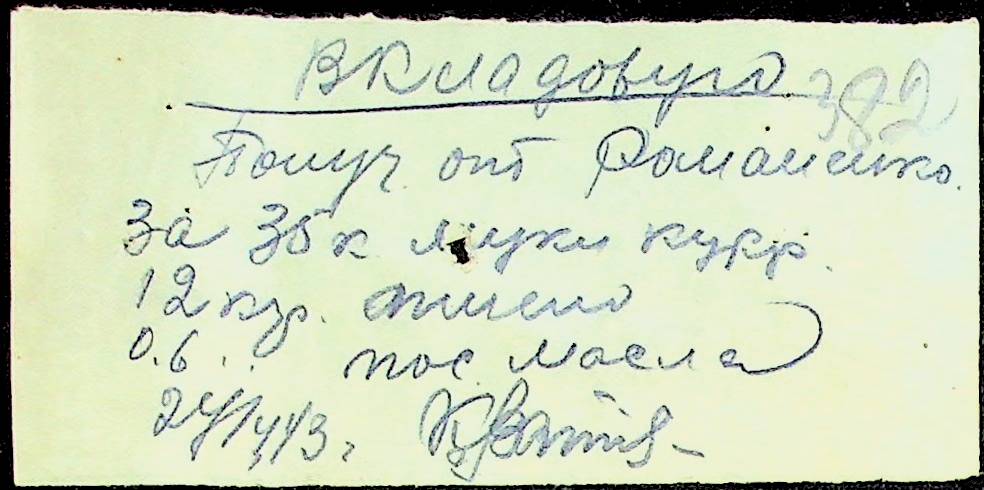 В Кладовую 382
Получ. от Романенко.
за 35 к муки кукр.
12 кгр. пшено
0.6 .. пос. масла